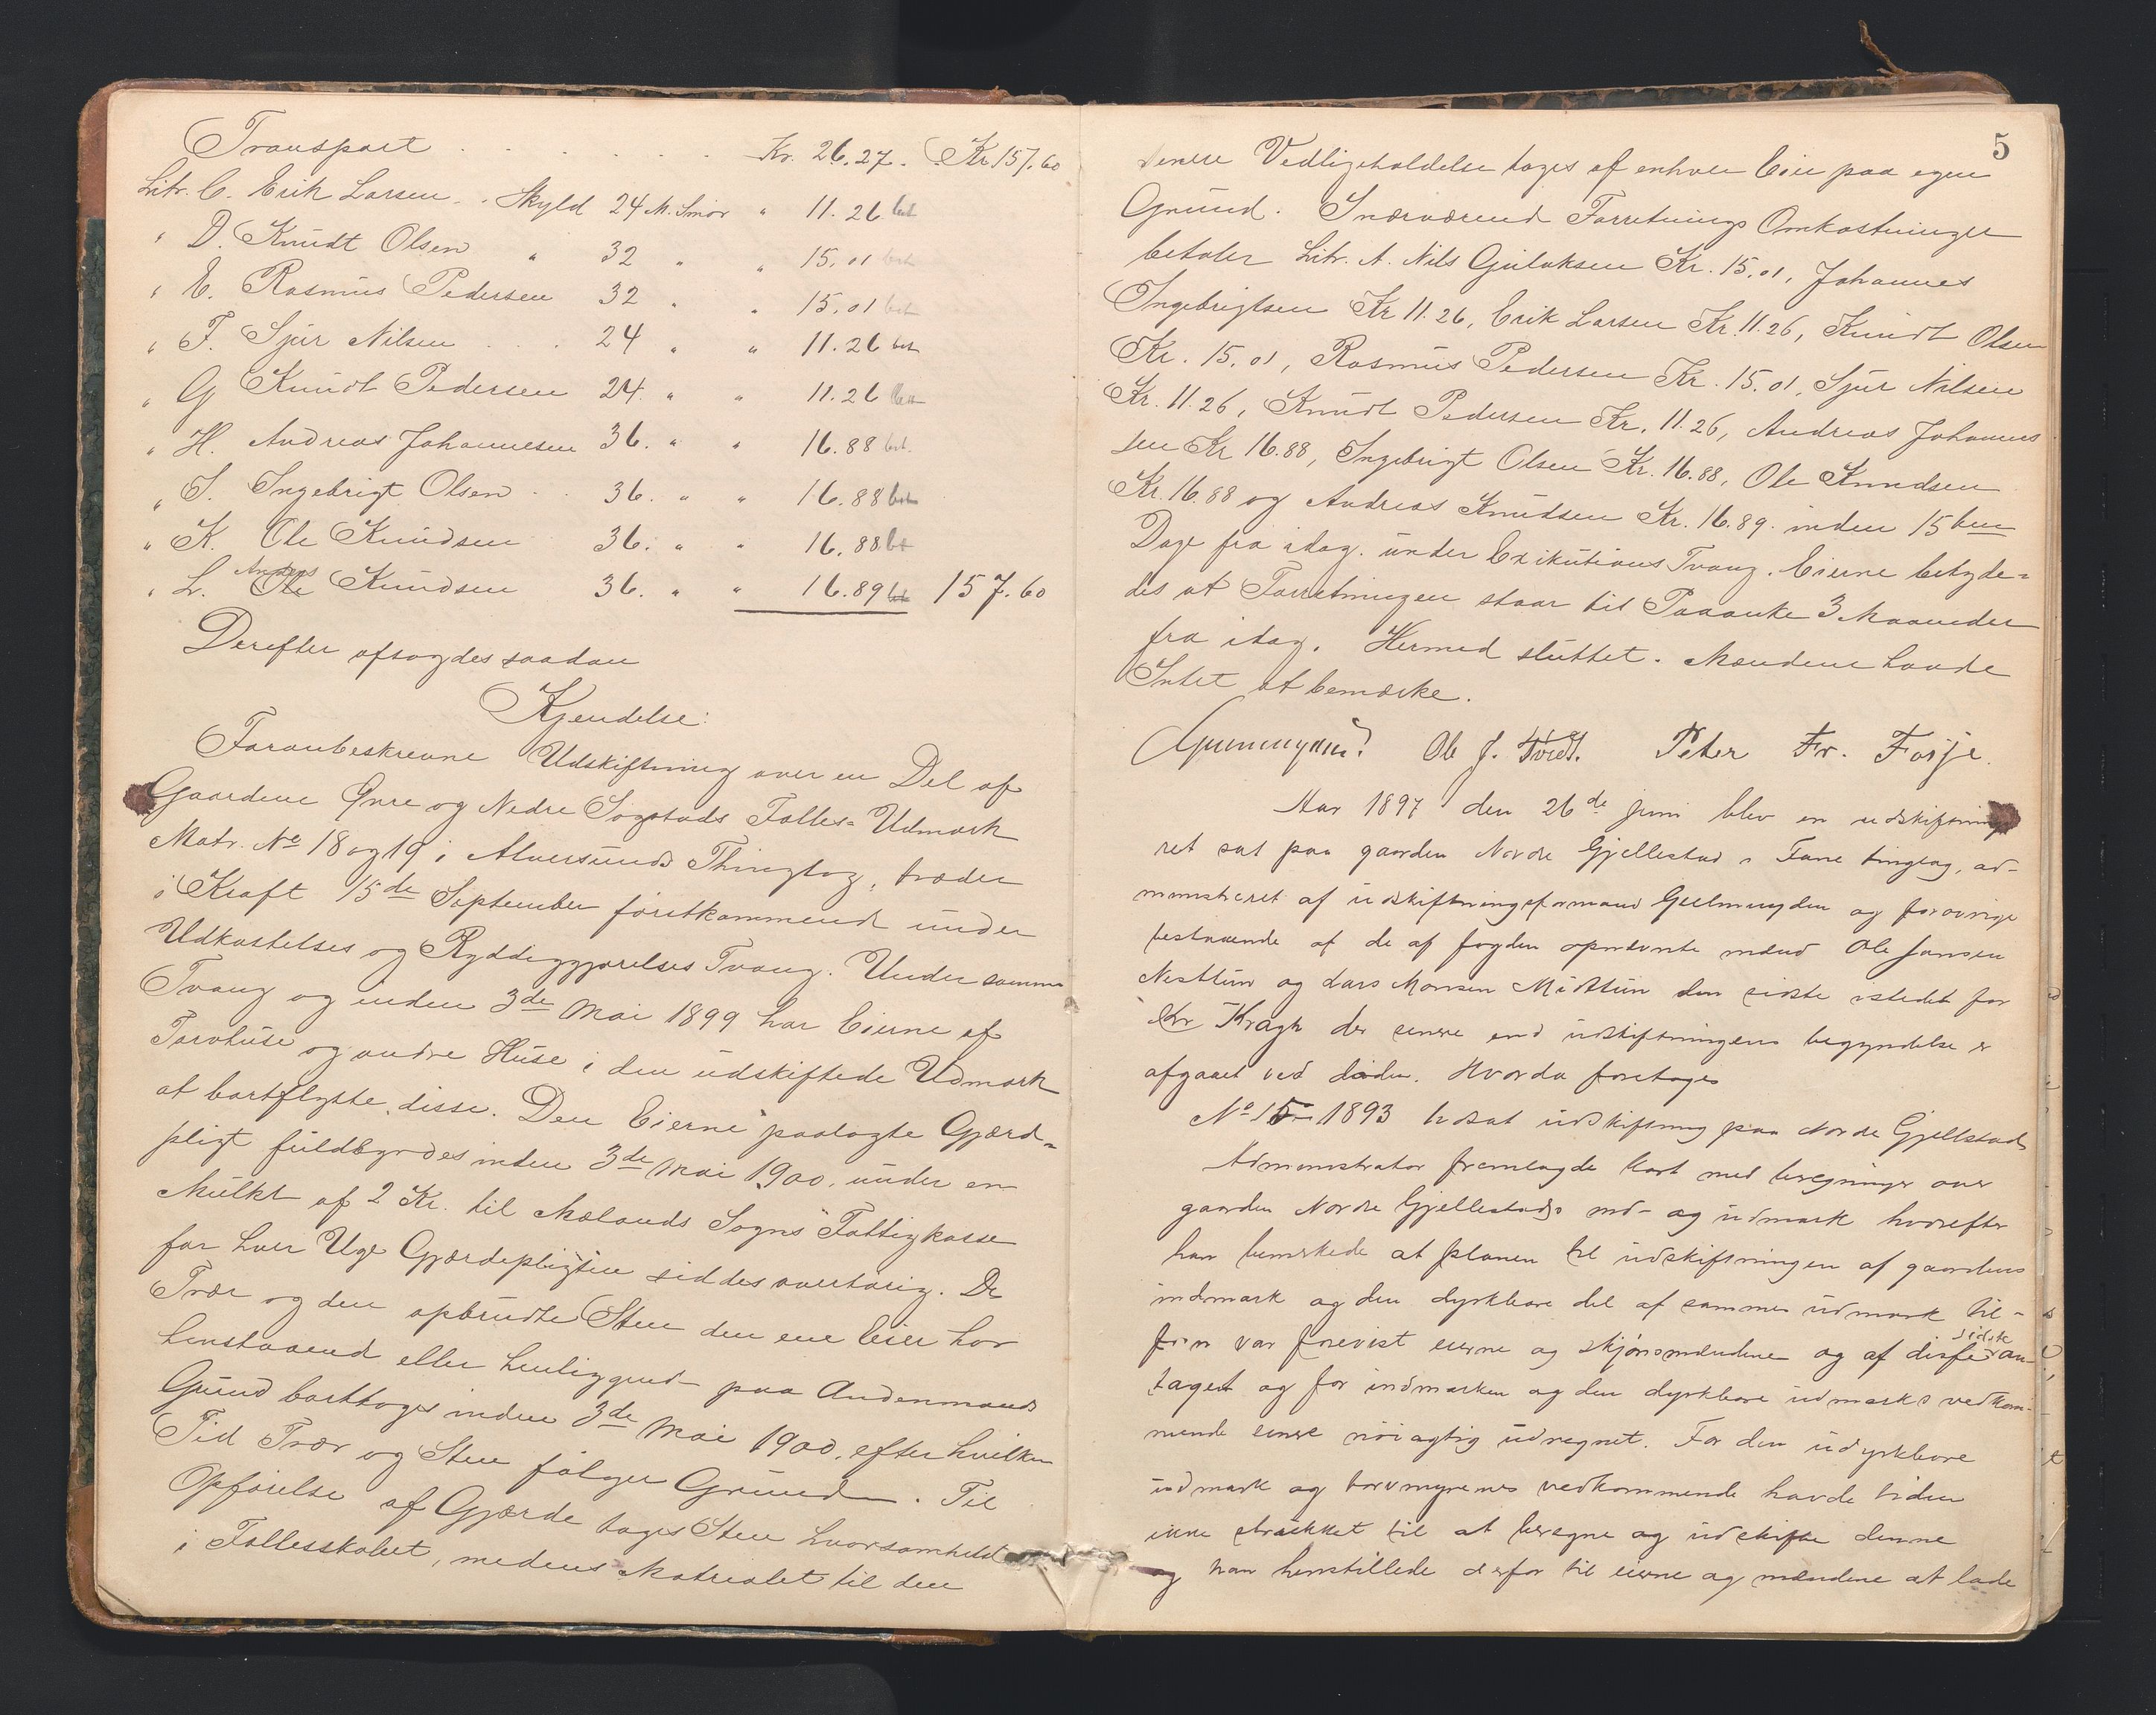 Transport . . . . . . . Kr. 26.27. Kr. 157.60
Litr. C. Erik Larsen . . Skyld 24 M. Smør " 11.26 bet
" D. Knudt Olsen " 32 " " 15.01 bet
" E. Rasmus Pedersen 32 " " 15.01 bet
" F. Sjur Nilsen . . . 24 " " 11.26 bet
" G Knudt Pedersen 24. " " 11.26 bet
" H. Andreas Johannesen 36. " " 16.88 bet.
" I. Ingebrigt Olsen . . 36. " " 16.88 bet
" K. Ole Knudsen 36. " " 16.88 bet
" L. Ole Anders Knudsen 36. " " 16.89 bet 157.60
Derefter afsagdes saadan
Kjendelse:
Foranbeskrevne Udskiftning over en Del af
Gaardene Øvre og Nedre Sogstads Fælles-Udmark
Matr. No 18 og 19 i Alversunds Thinglag, træder
i Kraft 15de September førstkommende under
Udkastelses og Ryddiggjørelses Tvang. Under samme
Tvang og inden 3de Mai 1899 har Eierne af
Torvhuse og andre Huse i den udskiftede Udmark
at bortflytte disse. Den Eierne paalagte Gjærd-
pligt fuldbyrdes inden 3de Mai 1900, under en
Mulkt af 2 Kr. til Mælands Sogns Fattigkasse
for hver Uge Gjærdepligten siddes overhørig. De
Trær og den opbrudte Sten den ene Eier har
henstaaende eller henliggende paa Andenmands
Grund borttages inden 3de Mai 1900, efter hvilken
Tid Trær og Sten følger Grunden. Til
Opførelse af Gjærde tages Sten hvorsomhelst
i Fællesskabet, medens Matrialet til den
5
senere Vedligeholdelse tages af enhver Eier paa egen
Grund. Nærværende Forretnings Omkostninger
betaler Litr. A. Nils Gulaksen Kr. 15.01, Johannes
Ingebrigtsen Kr 11.26, Erik Larsen Kr. 11.26, Knudt Olsen
Kr. 15.01, Rasmus Pedersen Kr. 15.01, Sjur Nilsen
Kr. 11.26, Knudt Pedersen Kr. 11.26, Andreas Johannes
sen Kr 16.88, Ingebrigt Olsen Kr. 16.88, Ole Knudsen
Kr. 16.88 og Andreas Knudsen Kr. 16.89. inden 15 ten
Dage fra idag. under Exikutions Tvang. Eierne betyde-
des at Forretningen staar til Paaanke 3 Maaneder
fra idag. Hermed sluttet. Mændene havde
Intet at bemærke.
Geelmuyden Ole J. Tvedt. Peter Fr. Fosse.
Aar 1897 den 26de juni blev en udskiftnings
ret sat paa gaarden Nordre Gjellestad i Fane tinglag, ad-
ministreret af udskiftningsformand Geelmuyden og forøvrigt
bestaaende af de af fogden opnævnte mænd Ole Jansen
Nesttun og Lars Monsen Midttun den sidste istedet for
Kr Kragh der senere end udskiftningens begyndelse er
afgaaet ved døden. Hvorda foretages
No 15 - 1893 Udsat udskiftning paa Nordre Gjellestad
Administrator fremlagde kart med beregninger over
gaarden Nordre Gjellestads ind- og udmark hvorefter
han bemerkede at planen til udskiftningen af gaardens
indmark og den dyrkbare del af sammes udmark til-
forn var forevist eierne og skjønsmændene og af disse sidste an-
taget og for indmarken og den dyrkbare udmarks vedkom-
mende senere nøiagtig udregnet. For den udyrkbare
udmark og torvmyrenes vedkommende havde tiden
ikke strukket til at beregne og udskifte denne
og han henstillede derfor til eierne og mændene at lade